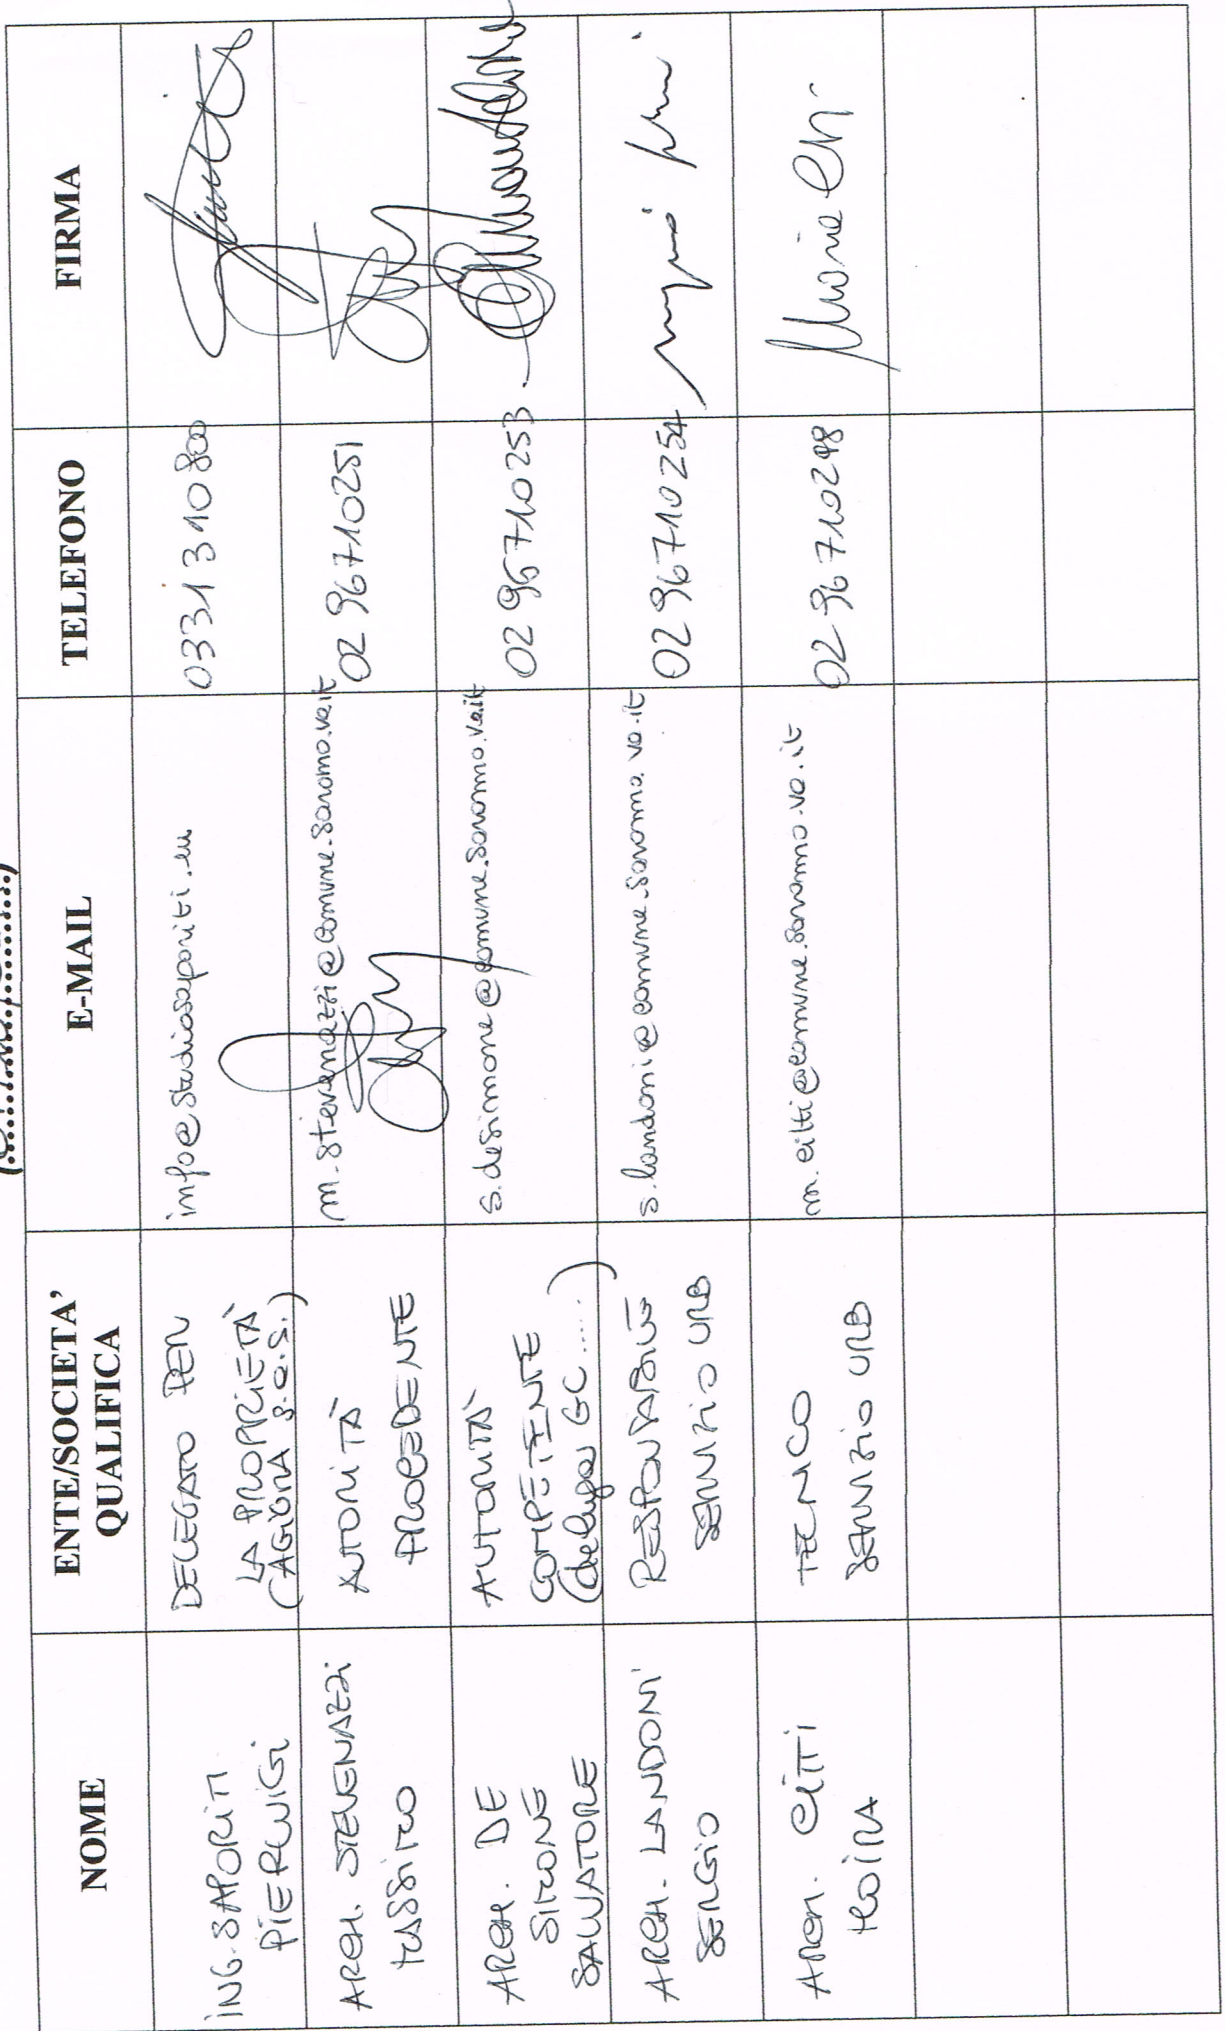 NOME
ENTE/SOCIETA'
QUALIFICA
E-MAIL
TELEFONO
FIRMA
ING. SAPORITI
PIERLUIGI
DELEGATO PER
LA PROPRIETÀ
info@studiosaporiti.eu
0331 310800
ARCH. STEVENAZZI
MASSIMO
AUTORITÀ
PROCEDENTE
m.stevenazzi@comune.saronno.va.it
02 96710251
ARCH. DE
SIMONE
SALVATORE
AUTORITÀ
COMPETENTE
(delega GC.....)
s.desimone@comune.saronno.va.it
02 96710253
ARCH. LANDONI
SERGIO
RESPONSABILE
SERVIZIO URB
s.landoni@comune.saronno.va.it
02 96710254
ARCH. CITTI
MOIRA
TECNICO
SERVIZIO URB
m.citti@comune.saronno.va.it
02 96710248